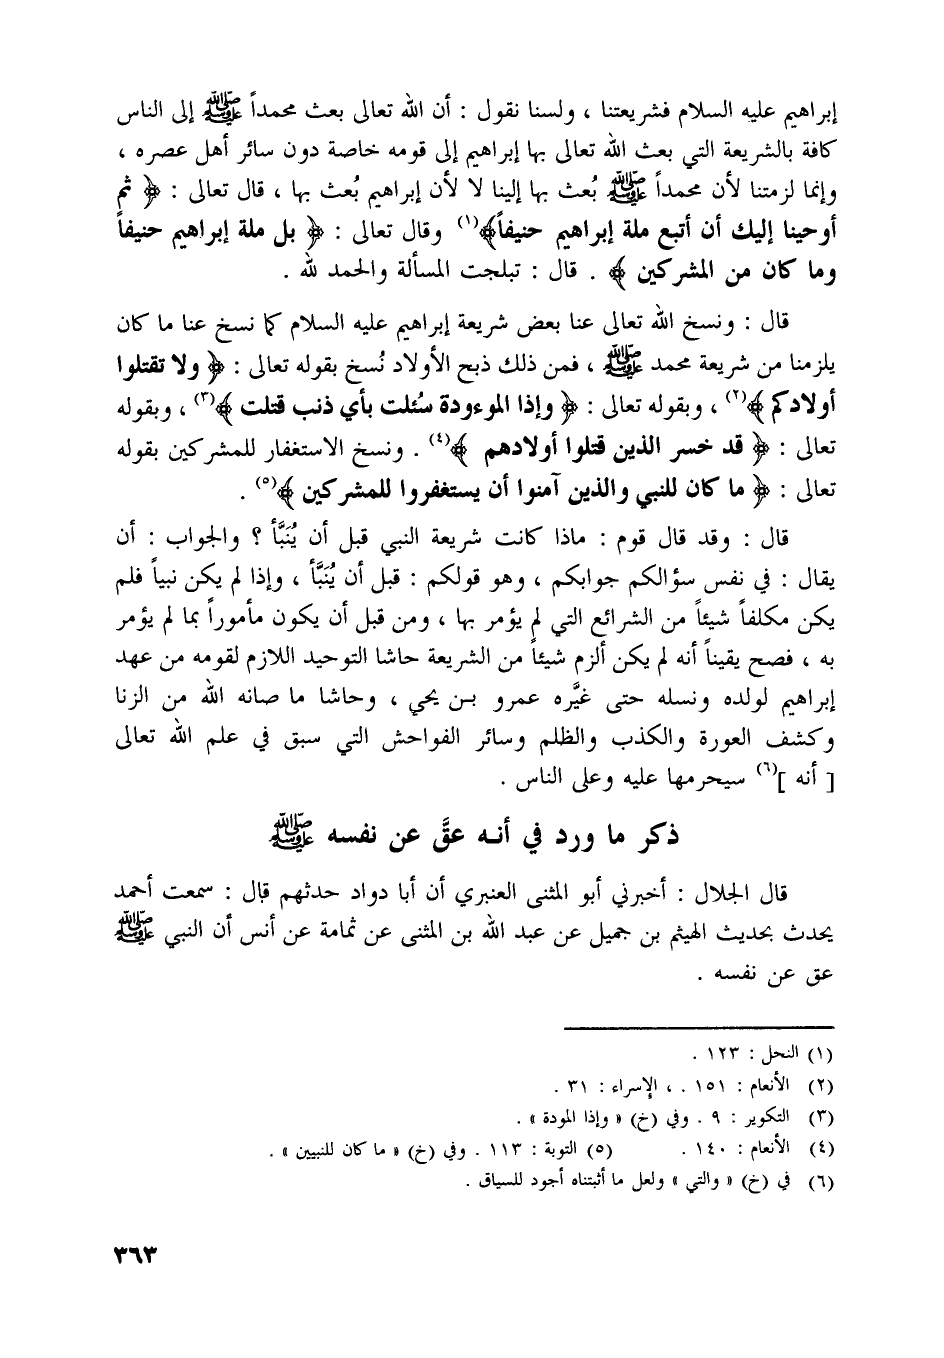 إبراهيم عليه السلام فشريعتنا ، ولسنا نقول : أن الله تعالى بعث محمداً ﷺ إلى الناس
كافة بالشريعة التي بعث الله تعالى بها إبراهيم إلى قومه خاصة دون سائر أهل عصره ،
وإنما لزمتنا لأن محمداً ﷺ بُعث بها إلينا لا لأن إبراهيم بُعث بها ، قال تعالى : ﴿ ثم
أوحينا إليك أن أتبع ملة إبراهيم حنيفاً﴾(١) وقال تعالى : ﴿ بل ملة إبراهيم حنيفاً
وما كان من المشركين ﴾ . قال : تبلجت المسألة والحمد لله .
قال : ونسخ الله تعالى عنا بعض شريعة إبراهيم عليه السلام كما نسخ عنا ما كان
يلزمنا من شريعة محمد ﷺ ، فمن ذلك ذبح الأولاد نُسخ بقوله تعالى : ﴿ ولا تقتلوا
أولادكم ﴾(٢) ، وبقوله تعالى : ﴿ وإذا الموءودة سُئلت بأي ذنب قتلت ﴾(٣) ، وبقوله
تعالى : ﴿ قد خسر الذين قتلوا أولادهم ﴾(٤) . ونسخ الاستغفار للمشركين بقوله
تعالى : ﴿ ما كان للنبي والذين آمنوا أن يستغفروا للمشركين ﴾(٥) .
قال : وقد قال قوم : ماذا كانت شريعة النبي قبل أن يُنَبَّأ ؟ والجواب : أن
يقال : في نفس سؤالكم جوابكم ، وهو قولكم : قبل أن يُنَبَّأ ، وإذا لم يكن نبياً فلم
يكن مكلفاً شيئاً من الشرائع التي لم يؤمر بها ، ومن قبل أن يكون مأموراً بما لم يؤمر
به ، فصح يقيناً أنه لم يكن ألزم شيئاً من الشريعة حاشا التوحيد اللازم لقومه من عهد
إبراهيم لولده ونسله حتى غيَّره عمرو بن يحي ، وحاشا ما صانه الله من الزنا
وكشف العورة والكذب والظلم وسائر الفواحش التي سبق في علم الله تعالى
[ أنه ](٦) سيحرمها عليه وعلى الناس .
ذكر ما ورد في أنه عقَّ عن نفسه ﷺ
قال الجلال : أخبرني أبو المثنى العنبري أن أبا دواد حدثهم قال : سمعت أحمد
يحدث بحديث الهيثم بن جميل عن عبد الله بن المثنى عن ثمامة عن أنس أن النبي ﷺ
عق عن نفسه .
(١) النحل : ١٢٣ .
(٢) الأنعام : ١٥١ . ، الإسراء : ٣١ .
(٣) التكوير : ٩ . وفي (خ) « وإذا المودة » .
(٤) الأنعام : ١٤٠ . (٥) التوبة : ١١٣ . وفي (خ) « ما كان للنبيين » .
(٦) في (خ) « والتي » ولعل ما أثبتناه أجود للسياق .
٣٦٣